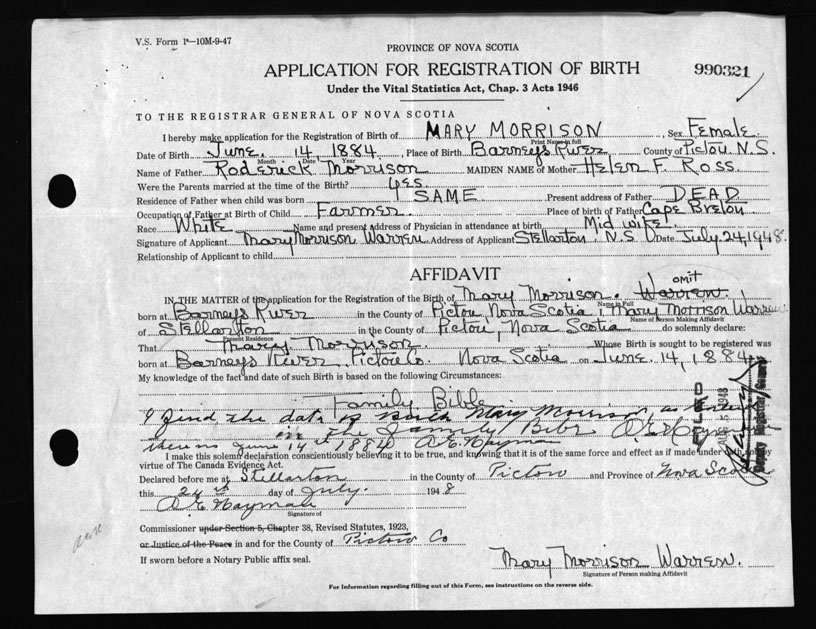 V.S. Form 1—10M-9-47
PROVINCE OF NOVA SCOTIA
APPLICATION FOR REGISTRATION OF BIRTH
990321
Under the Vital Statistics Act, Chap. 3 Acts 1946
TO THE REGISTRAR GENERAL OF NOVA SCOTIA
I hereby make application for the Registration of Birth of MARY MORRISON, Sex Female.
Print Name in full
Date of Birth June. 14, 1884, Place of Birth Barneys River County of Pictou, N.S.
Month Date Year
Name of Father Roderick Morrison MAIDEN NAME of Mother Helen F. Ross.
Were the Parents married at time of the Birth? yes.
Residence of Father when child was born SAME Present address of Father DEAD
Occupation of Father at Birth of Child Farmer. Place of birth of Father Cape Breton
Race White Name and present address of Physician in attendance at birth Mid wife.
Signature of Applicant Mary Morrison Warren Address of Applicant Stellarton, N.S. Date July. 24, 1948.
Relationship of Applicant to child
AFFIDAVIT
omit
IN THE MATTER of the application for the Registration of the Birth of Mary Morrison. Warren
Name in Full
born at Barneys River in the County of Pictou, Nova Scotia, Mary Morrison Warren
Name of Person Making Affidavit
of Stellarton in the County of Pictou, Nova Scotia do solemnly declare:
Present Residence
That Mary Morrison. Whose Birth is sought to be registered was
born at Barneys River, Pictou Co Nova Scotia on June. 14, 1884
My knowledge of the fact and date of such Birth is based on the following Circumstances:
Family Bible
I find the date of Birth Mary Morrison, as
in the Family Bible A.E. Hayman
June 14th 1884 A.E. Hayman
I make this solemn declaration conscientiously believing it to be true, and knowing that it is of the same force and effect as if made under oath by
virtue of The Canada Evidence Act.
Declared before me at Stellarton in the County of Pictou and Province of Nova Scotia
this 24 day of July. 1948
A.E. Hayman
Signature of
Commissioner under Section 5, Chapter 38, Revised Statutes, 1923,
or Justice of the Peace in and for the County of Pictou Co
If sworn before a Notary Public affix seal.
Mary Morrison Warren.
Signature of Person making Affidavit
For Information regarding filling out of this Form, see instructions on the reverse side.